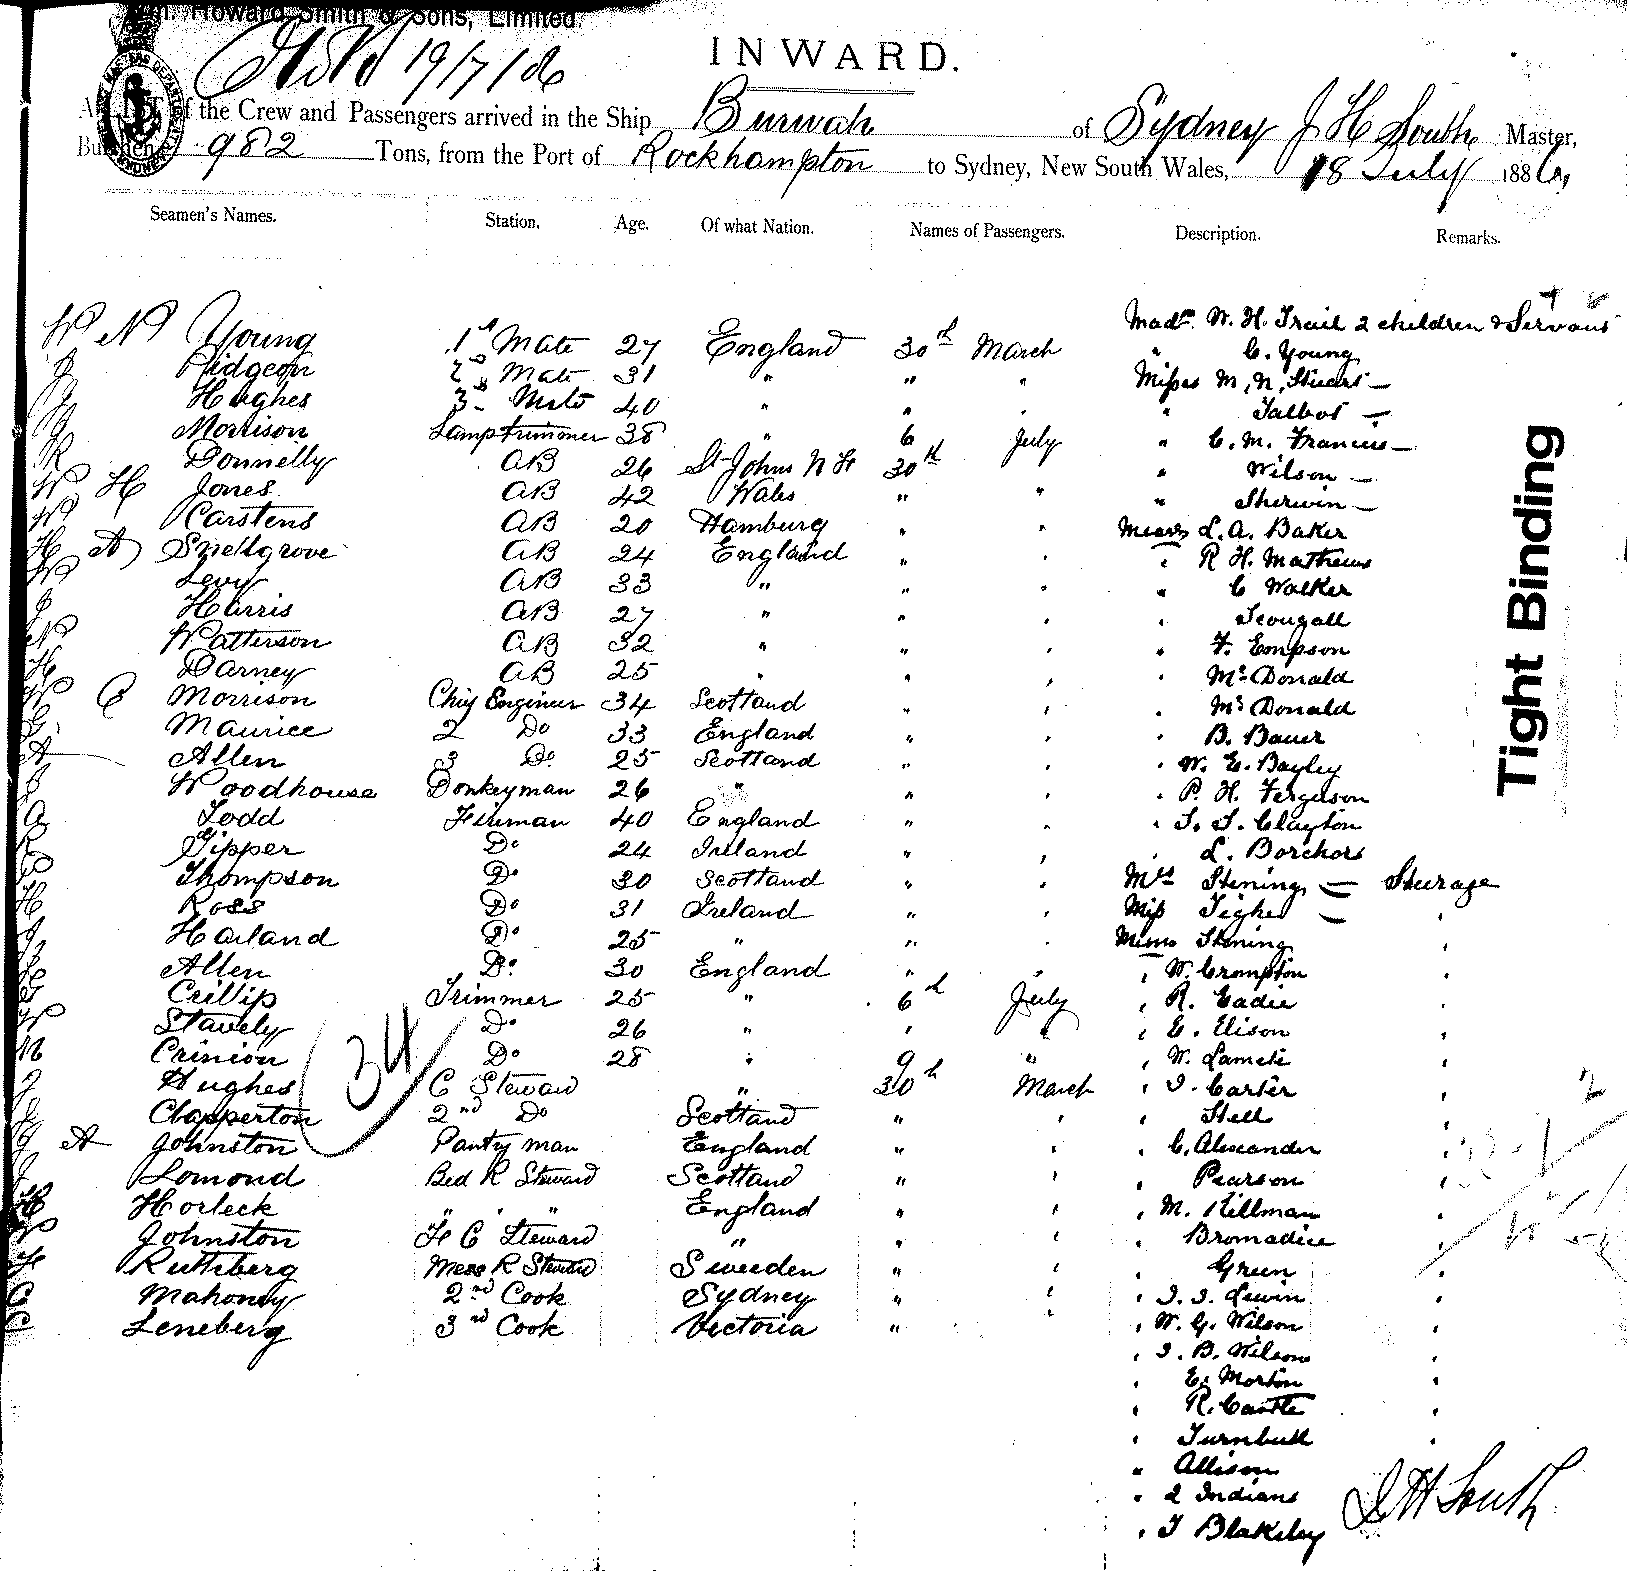 Wm. Howard Smith & Sons, Limited.
19/7/86
INWARD.
A LIST of the Crew and Passengers arrived in the Ship Burwah of Sydney J H South Master,
Burthen 982 Tons, from the Port of Rockhampton to Sydney, New South Wales, 18 July 1886,
Seamen's Names. Station. Age. Of what Nation. Names of Passengers. Description. Remarks.
Madm W. H. Trail 2 children & Servant
W N Young 1st Mate 27 England 30th March " C. Young
J Pidgeon 2nd Mate 31 " " " Misses M, N, Stuart —
J Hughes 3rd Mate 40 " " " " Talbot —
J Morrison Lamptrimmer 38 " 6 July " C. M. Francis —
R Donnelly AB 26 St Johns N F 30th " Wilson —
W H Jones AB 42 Wales " " " Sherwin —
W Carstens AB 20 Hamburg " " Messrs L. A. Baker
H A Snellgrove AB 24 England " " " R H. Mathews
W Levy AB 33 " " " " C Walker
J Harris AB 27 " " " " Scougall
W Watterson AB 32 " " " " F. Empson
H Darney AB 25 " " " " Mc Donald
W C Morrison Chief Engineer 34 Scotland " " " Mc Donald
G Maurice 2 Do 33 England " " B. Bauer
A Allen 3 Do 25 Scotland " " " W. E. Bayley
J Woodhouse Donkeyman 26 " " " " P. H. Ferguson
A Todd Fireman 40 England " " " T. T. Clayton
R Tipper Do 24 Ireland " " " L. Borchers
Thompson Do 30 Scotland " " Mrs Stening — Steerage
H Ross Do 31 Ireland " " Miss Tighe — "
J Harland Do 25 " " " Messrs Stening "
Allen Do 30 England " " " W. Crompton "
Crillip Trimmer 25 " 6th July " R. Eadie "
W Stavely Do 26 " " " " E. Elison "
M Crinion Do 28 " 9 " " W. Lameti "
J Hughes C Steward " 30th March " J. Carter "
Clapperton 2nd Do Scotland " " " Stell "
J A Johnston Pantry man England " " " C. Alexander "
J Lomond Bed R Steward Scotland " " " Pearson "
H Horleck " " " England " " " M. Killman "
W Johnston F C Steward " " " " Bromadice "
F Ruthberg Mess R Steward Sweeden " " " Green "
C Mahoney 2nd Cook Sydney " " " J. J. Lewin "
C Leneberg 3rd Cook Victoria " " W. G. Wilson "
" J. B. Wilson "
" E. Morton "
" R. Castle "
" Turnbull "
" Allison
" 2 Indians
" J Blakeley
34
J H South
Tight Binding